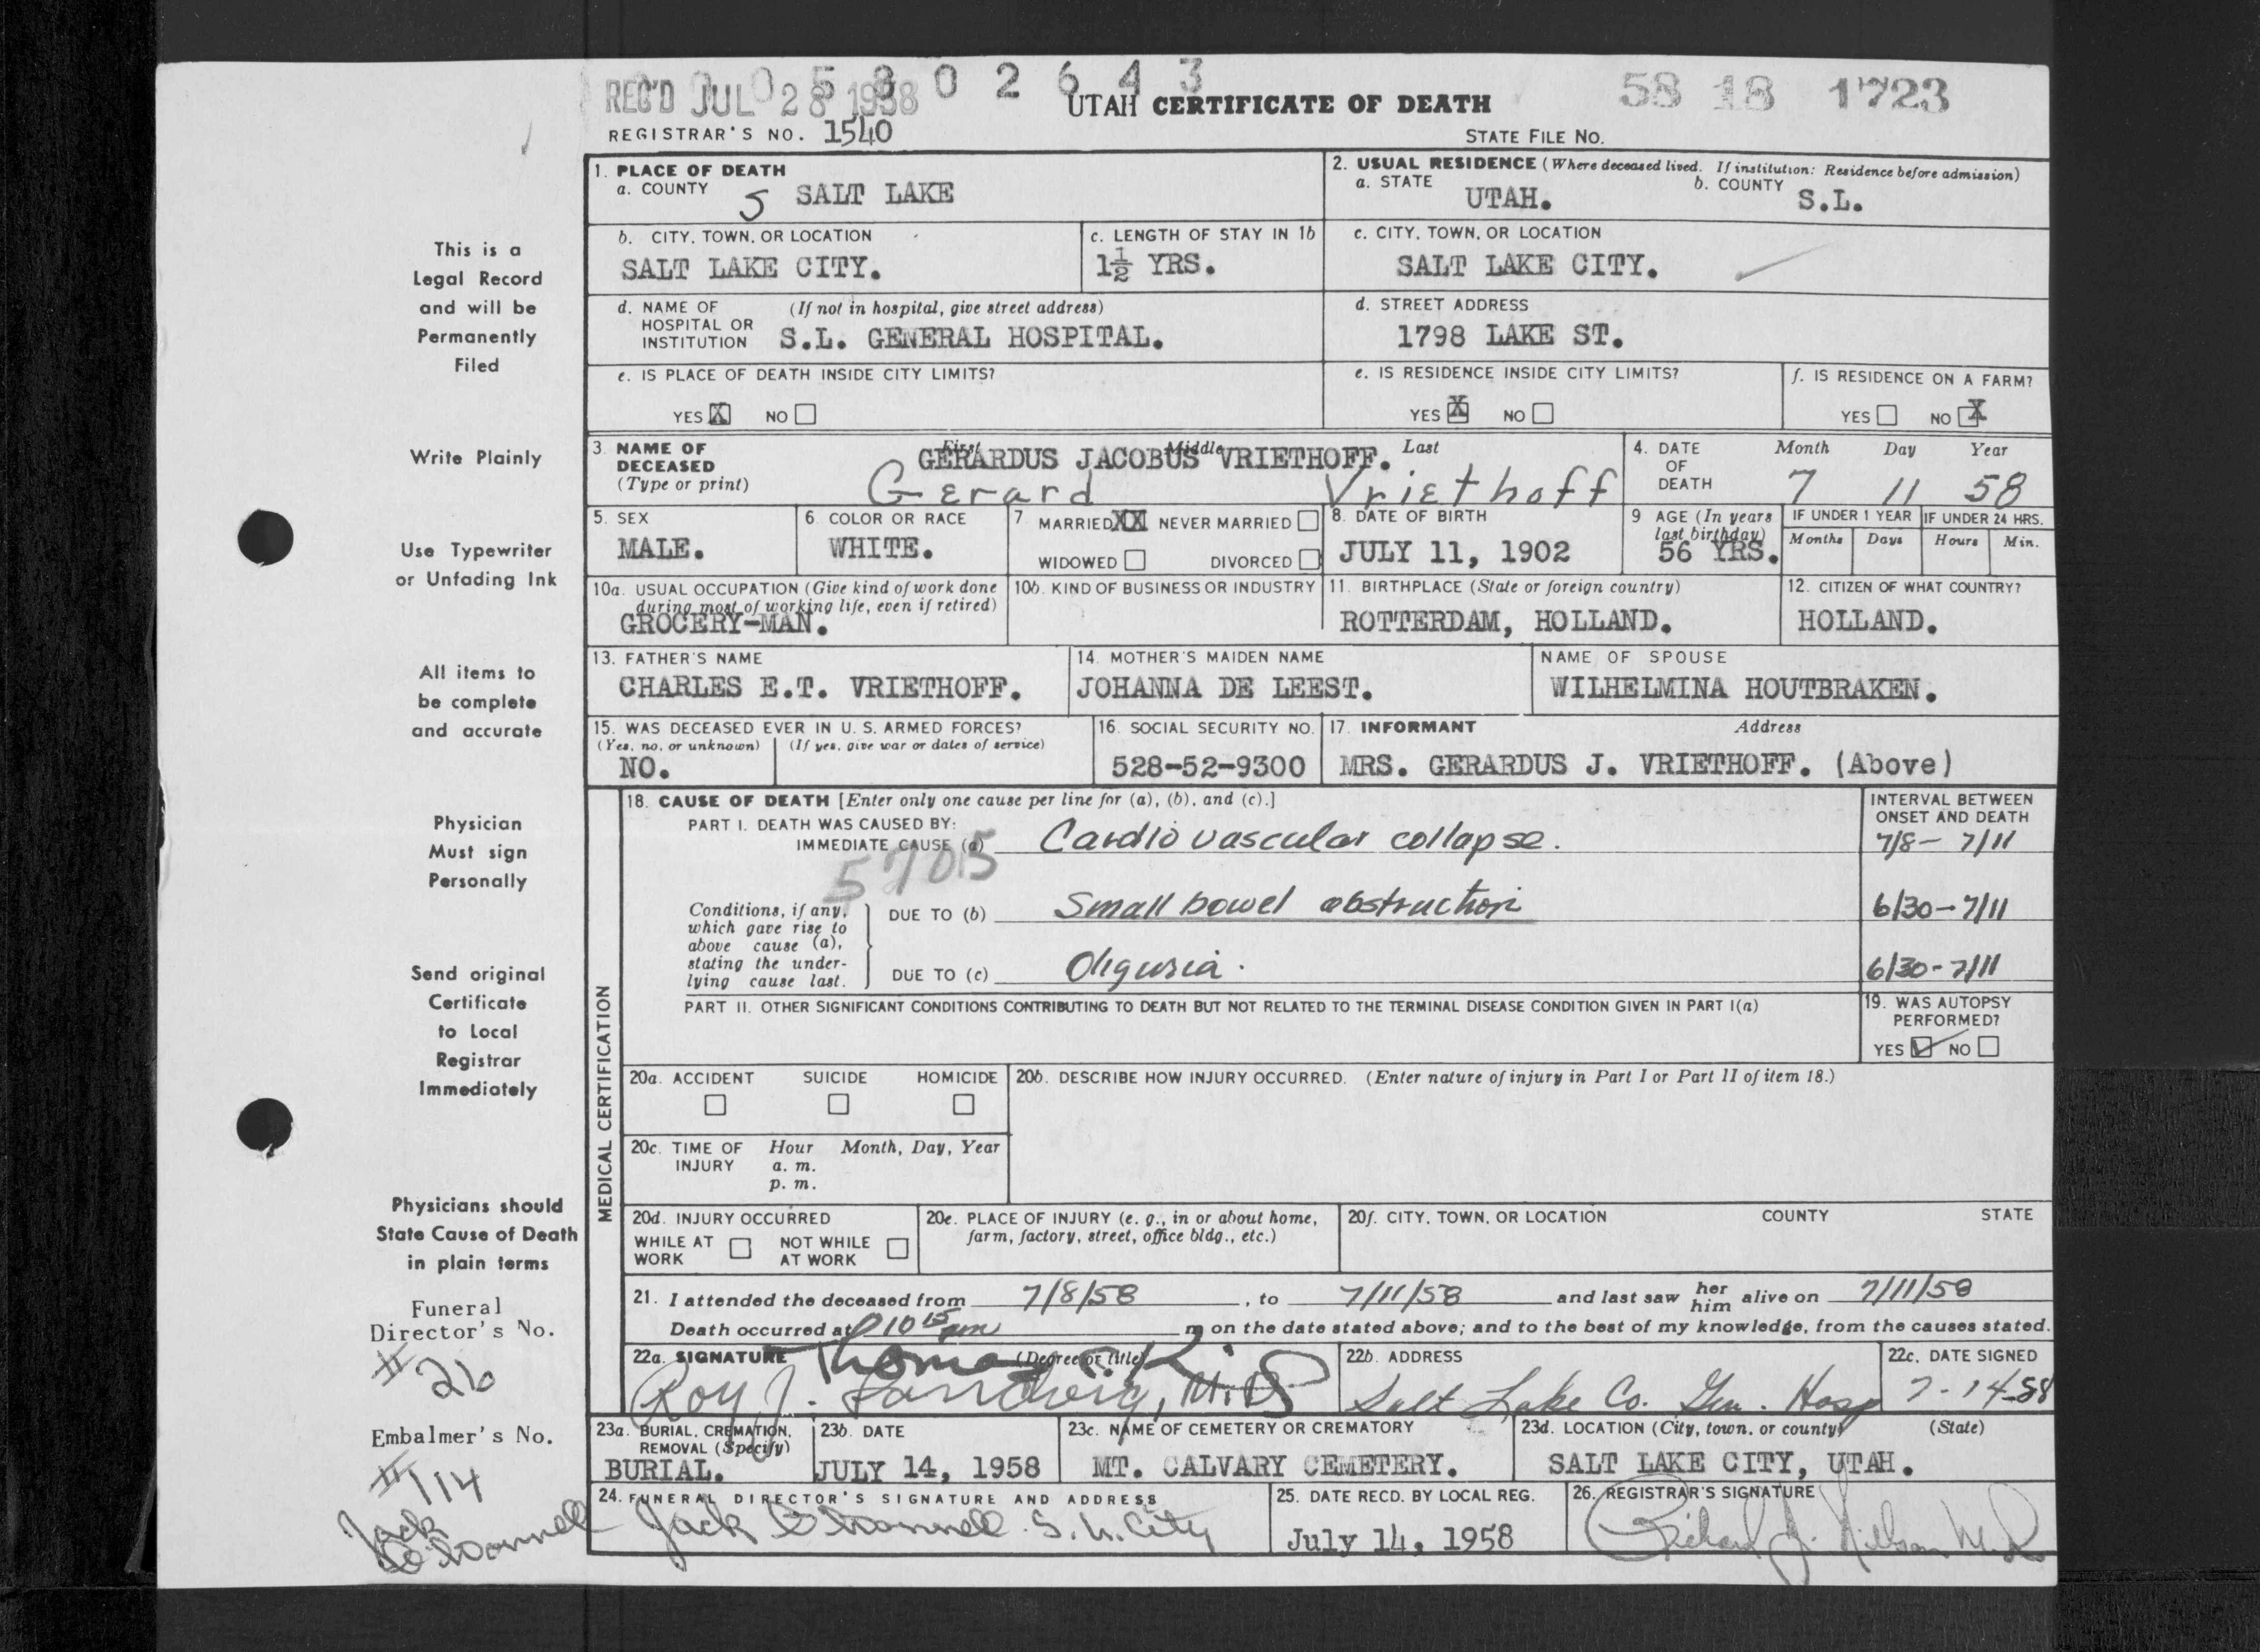 REC'D JUL 28 1958
005802643
58 18 1723
UTAH CERTIFICATE OF DEATH
REGISTRAR'S NO. 1540
STATE FILE NO.
This is a
Legal Record
and will be
Permanently
Filed
Write Plainly
Use Typewriter
or Unfading Ink
All items to
be complete
and accurate
Physician
Must sign
Personally
Send original
Certificate
to Local
Registrar
Immediately
Physicians should
State Cause of Death
in plain terms
Funeral
Director's No.
# 26
Embalmer's No.
# 114
Jack
O'Donnell
1. PLACE OF DEATH
a. COUNTY 5 SALT LAKE
2. USUAL RESIDENCE (Where deceased lived. If institution: Residence before admission)
a. STATE UTAH. b. COUNTY S.L.
b. CITY, TOWN, OR LOCATION
SALT LAKE CITY.
c. LENGTH OF STAY IN 1b
1½ YRS.
c. CITY, TOWN, OR LOCATION
SALT LAKE CITY.
d. NAME OF HOSPITAL OR INSTITUTION (If not in hospital, give street address)
S.L. GENERAL HOSPITAL.
d. STREET ADDRESS
1798 LAKE ST.
e. IS PLACE OF DEATH INSIDE CITY LIMITS?
YES X NO
e. IS RESIDENCE INSIDE CITY LIMITS?
YES X NO
f. IS RESIDENCE ON A FARM?
YES NO X
3. NAME OF DECEASED (Type or print)
First Middle Last
GERARDUS JACOBUS VRIETHOFF.
Gerard Vriethoff
4. DATE OF DEATH
Month Day Year
7 11 58
5. SEX
MALE.
6. COLOR OR RACE
WHITE.
7. MARRIED XX NEVER MARRIED
WIDOWED DIVORCED
8. DATE OF BIRTH
JULY 11, 1902
9 AGE (In years last birthday)
56 YRS.
IF UNDER 1 YEAR
Months Days
IF UNDER 24 HRS.
Hours Min.
10a. USUAL OCCUPATION (Give kind of work done during most of working life, even if retired)
GROCERY-MAN.
10b. KIND OF BUSINESS OR INDUSTRY
11. BIRTHPLACE (State or foreign country)
ROTTERDAM, HOLLAND.
12. CITIZEN OF WHAT COUNTRY?
HOLLAND.
13. FATHER'S NAME
CHARLES E.T. VRIETHOFF.
14. MOTHER'S MAIDEN NAME
JOHANNA DE LEEST.
NAME OF SPOUSE
WILHELMINA HOUTBRAKEN.
15. WAS DECEASED EVER IN U. S. ARMED FORCES?
(Yes, no, or unknown) (If yes, give war or dates of service)
NO.
16. SOCIAL SECURITY NO.
528-52-9300
17. INFORMANT Address
MRS. GERARDUS J. VRIETHOFF. (Above)
MEDICAL CERTIFICATION
18. CAUSE OF DEATH [Enter only one cause per line for (a), (b), and (c).]
INTERVAL BETWEEN ONSET AND DEATH
PART I. DEATH WAS CAUSED BY:
IMMEDIATE CAUSE (a) Cardiovascular collapse. 7/8 - 7/11
5705
Conditions, if any, which gave rise to above cause (a), stating the underlying cause last.
DUE TO (b) Small bowel obstruction 6/30-7/11
DUE TO (c) Oliguria. 6/30-7/11
PART II. OTHER SIGNIFICANT CONDITIONS CONTRIBUTING TO DEATH BUT NOT RELATED TO THE TERMINAL DISEASE CONDITION GIVEN IN PART I(a)
19. WAS AUTOPSY PERFORMED?
YES ✓ NO
20a. ACCIDENT SUICIDE HOMICIDE
20b. DESCRIBE HOW INJURY OCCURRED. (Enter nature of injury in Part I or Part II of item 18.)
20c. TIME OF INJURY Hour Month, Day, Year
a. m.
p. m.
20d. INJURY OCCURRED
WHILE AT WORK NOT WHILE AT WORK
20e. PLACE OF INJURY (e. g., in or about home, farm, factory, street, office bldg., etc.)
20f. CITY, TOWN, OR LOCATION COUNTY STATE
21. I attended the deceased from 7/8/58, to 7/11/58 and last saw her him alive on 7/11/58
Death occurred at 10 15 pm m on the date stated above; and to the best of my knowledge, from the causes stated.
22a. SIGNATURE (Degree or title)
Thomas C. King
Roy J. Sandvig, M.D.
22b. ADDRESS
Salt Lake Co. Gen. Hosp
22c. DATE SIGNED
7-14-58
23a. BURIAL, CREMATION, REMOVAL (Specify)
BURIAL.
23b. DATE
JULY 14, 1958
23c. NAME OF CEMETERY OR CREMATORY
MT. CALVARY CEMETERY.
23d. LOCATION (City, town, or county) (State)
SALT LAKE CITY, UTAH.
24. FUNERAL DIRECTOR'S SIGNATURE AND ADDRESS
Jack O'Donnell S. L. City
25. DATE RECD. BY LOCAL REG.
July 14, 1958
26. REGISTRAR'S SIGNATURE
Richard J. Nilson M.D.